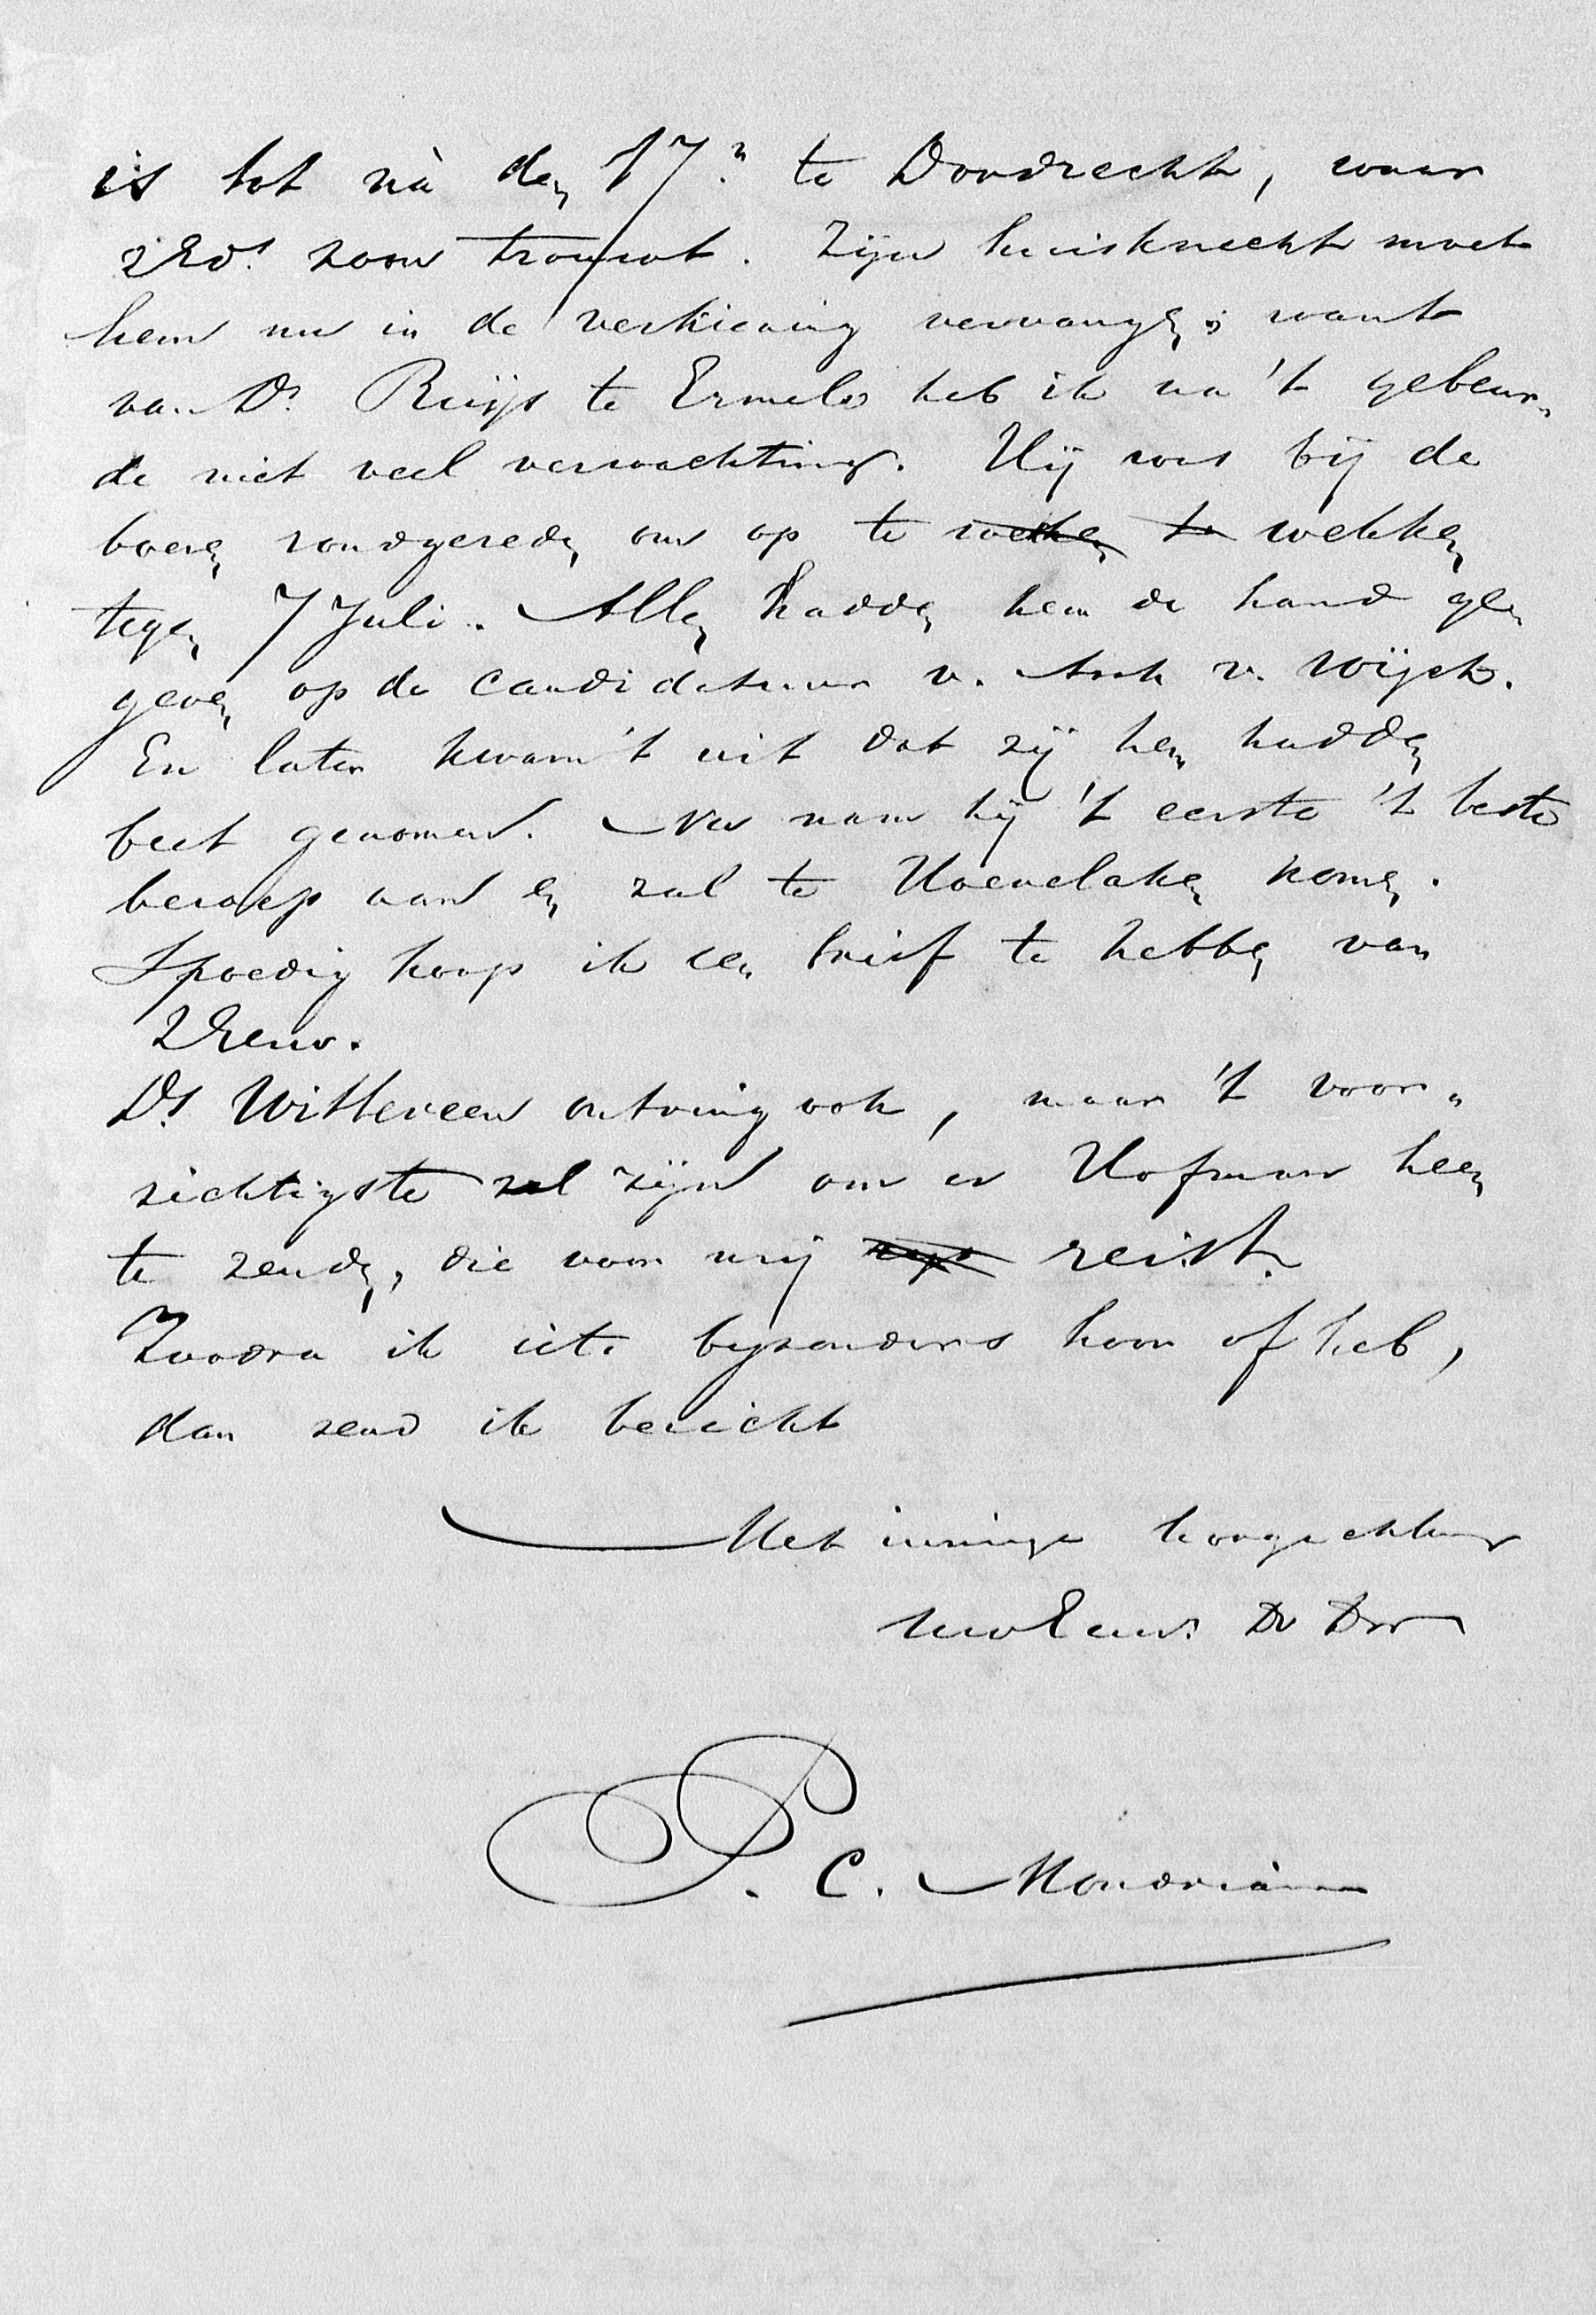 is tot nà den 17n te Dordrecht, waar
ZEds zoon trouwt. Zijn huisknecht moet
hem nu in de verkiezing vervangen; want
van Ds Ruijs te Ermelo heb ik na 't gebeur-
de niet veel verwachting. Hij was bij de
boeren rondgereden om op te wekken te wekken
tegen 7 Juli. Allen hadden hem de hand ge-
geven op de candidatuur v. Asch v. Wijck.
En later kwam 't uit dat zij hem hadden
beet genomen. Nu nam hij 't eerste 't beste
beroep aan en zal te Hoevelaken komen.
Spoedig hoop ik een brief te hebben van
ZEerw.
Ds Witteveen ontving ook, maar 't voor-
zichtigste zal zijn om er Hofman heen
te zenden, die voor mij reist.
Zoodra ik iets byzonders hoor of heb,
dan zend ik bericht
Met innige hoogachting
UwEerws Dv Dr
P. C. Mondriaan